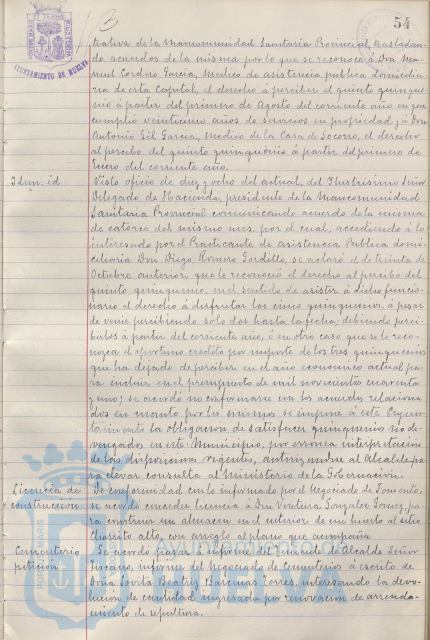 54
trativa de la Mancomunidad Sanitaria Provincial, trasladan-
do acuerdos de la misma por lo que se reconoce á Don Ma-
nuel Cordero García, Médico de asistencia publica domicilia-
ria de esta Capital, el derecho á percibir el quinto quinque-
nio á partir del primero de Agosto del corriente año en que
cumplió veinticinco años de servicios en propiedad, y á Don
Antonio Gil García, Médico de la Casa de Socorro, el derecho
al percibo del quinto quinquenio á partir del primero de
Enero del corriente año.
Idem. id
Visto oficio de diez y ocho del actual, del Ilustrisimo Señor
Delegado de Hacienda, presidente de la Mancomunidad
Sanitaria Provincial comunicando acuerdo de la misma
de catorce del mismo mes, por el cual, accediendo á lo
interesado por el Practicante de asistencia Publica domi-
ciliaria Don Diego Romero Gordillo, se aclaró el de treinta de
Octubre anterior, que le reconoció el derecho al percibo del
quinto quinquenio, en el sentido de asistir á dicho funcio-
nario el derecho á disfrutar los cinco quinquenios, á pesar
de venir percibiendo solo dos hasta la fecha, debiendo perci-
birlos á partir del corriente año, ó en otro caso que se le reco-
nozca el oportuno credito por importe de los tres quinquenios
que ha dejado de percibir en el año economico actual pa-
ra incluir en el presupuesto de mil novecientos cuarenta
y uno; se acordó no conformarse con los acuerdos relaciona-
dos en cuanto por los mismos se impone á este Ayun-
tamiento la obligacion de satisfacer quinquenios no de-
vengados en este Municipio, por erronea interpretación
de las disposiciones vigentes, autorizandose al Alcalde pa-
ra elevar consulta al Ministerio de la Gobernación.
Licencia de
construcción.
De conformidad con lo informado por el Negociado de Fomento,
se acordó conceder licencia á Don Ventura Gonzalez Gomez, pa-
ra construir un almacen en el interior de un huerto al sitio
Charito alto, con arreglo al plano que acompaña
Cementerio
petición
Se acordó pasar á informe del Teniente de Alcalde Señor
informe del Negociado de Cementerios á escrito de
Doña Jovita Beatriz Barcenas Torres, interesando la devo-
lución de cantidad ingresada por renovacion de arrenda-
miento de sepultura.
AYUNTAMIENTO DE HUELVA
Ayuntamiento de